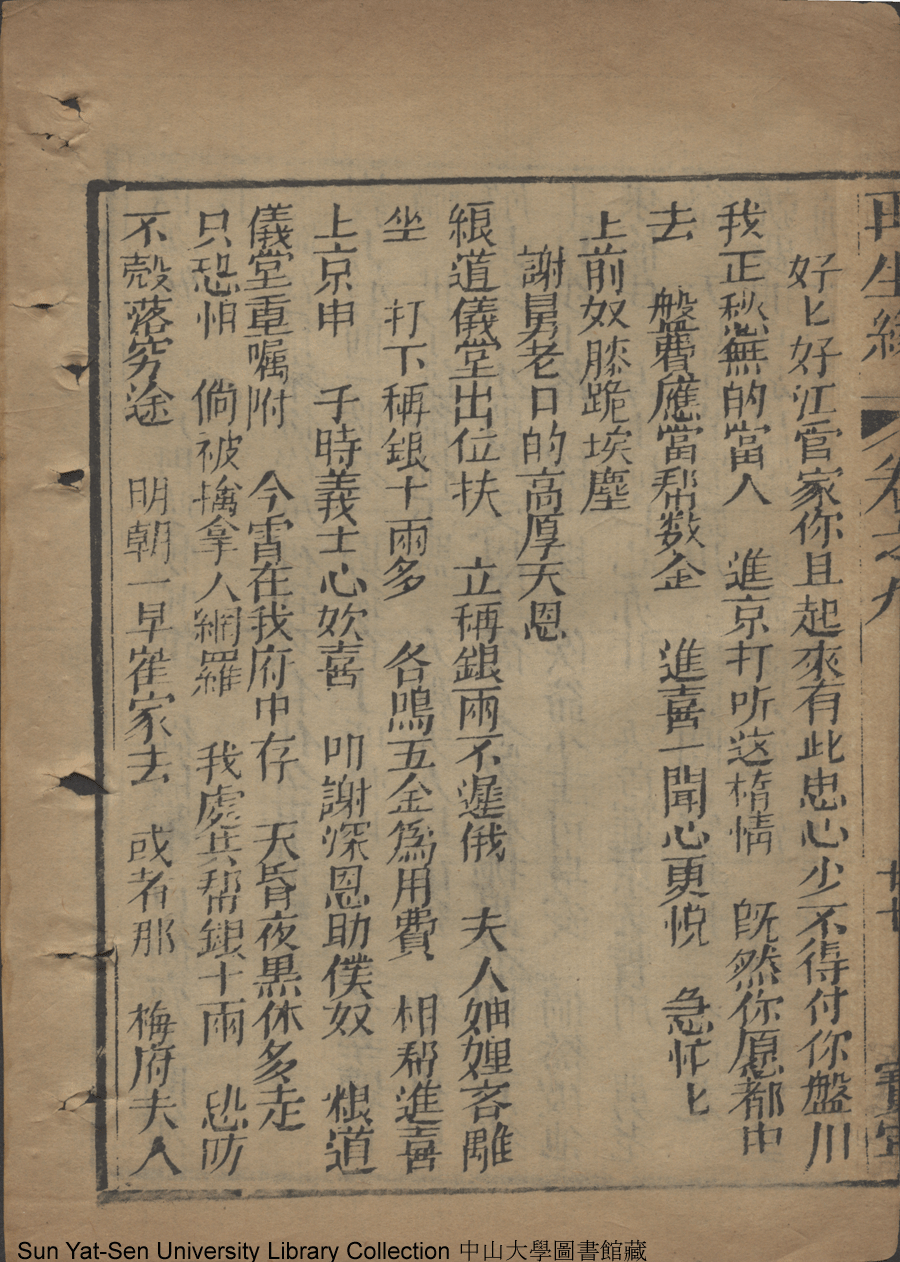 再生緣 卷之九 廿七
好匕好江官家你且起來有此忠心少不得付你盤川
我正愁無的當人 進京打听这樁情 既然你愿都中
去 盤費應當帮数金 進喜一聞心更悅 急忙匕
上前奴膝跪埃塵
謝舅老口的高厚天恩
糨道儀堂出位扶 立稱銀兩不遲俄 夫人妯娌客离
坐 打下稱銀十兩多 各贈五金為用費 相帮進喜
上京中 于時義士心欢喜 叩謝深恩助僕奴 糨道
儀堂重嘱咐 今霄在我府中存 天昏夜黑休多走
只恐怕 倘被擒拿人網羅 我處共帮銀十兩 恐防
不殻落穷途 明朝一早崔家去 或者那 梅府夫人
Sun Yat-Sen University Library Collection 中山大學圖書館藏